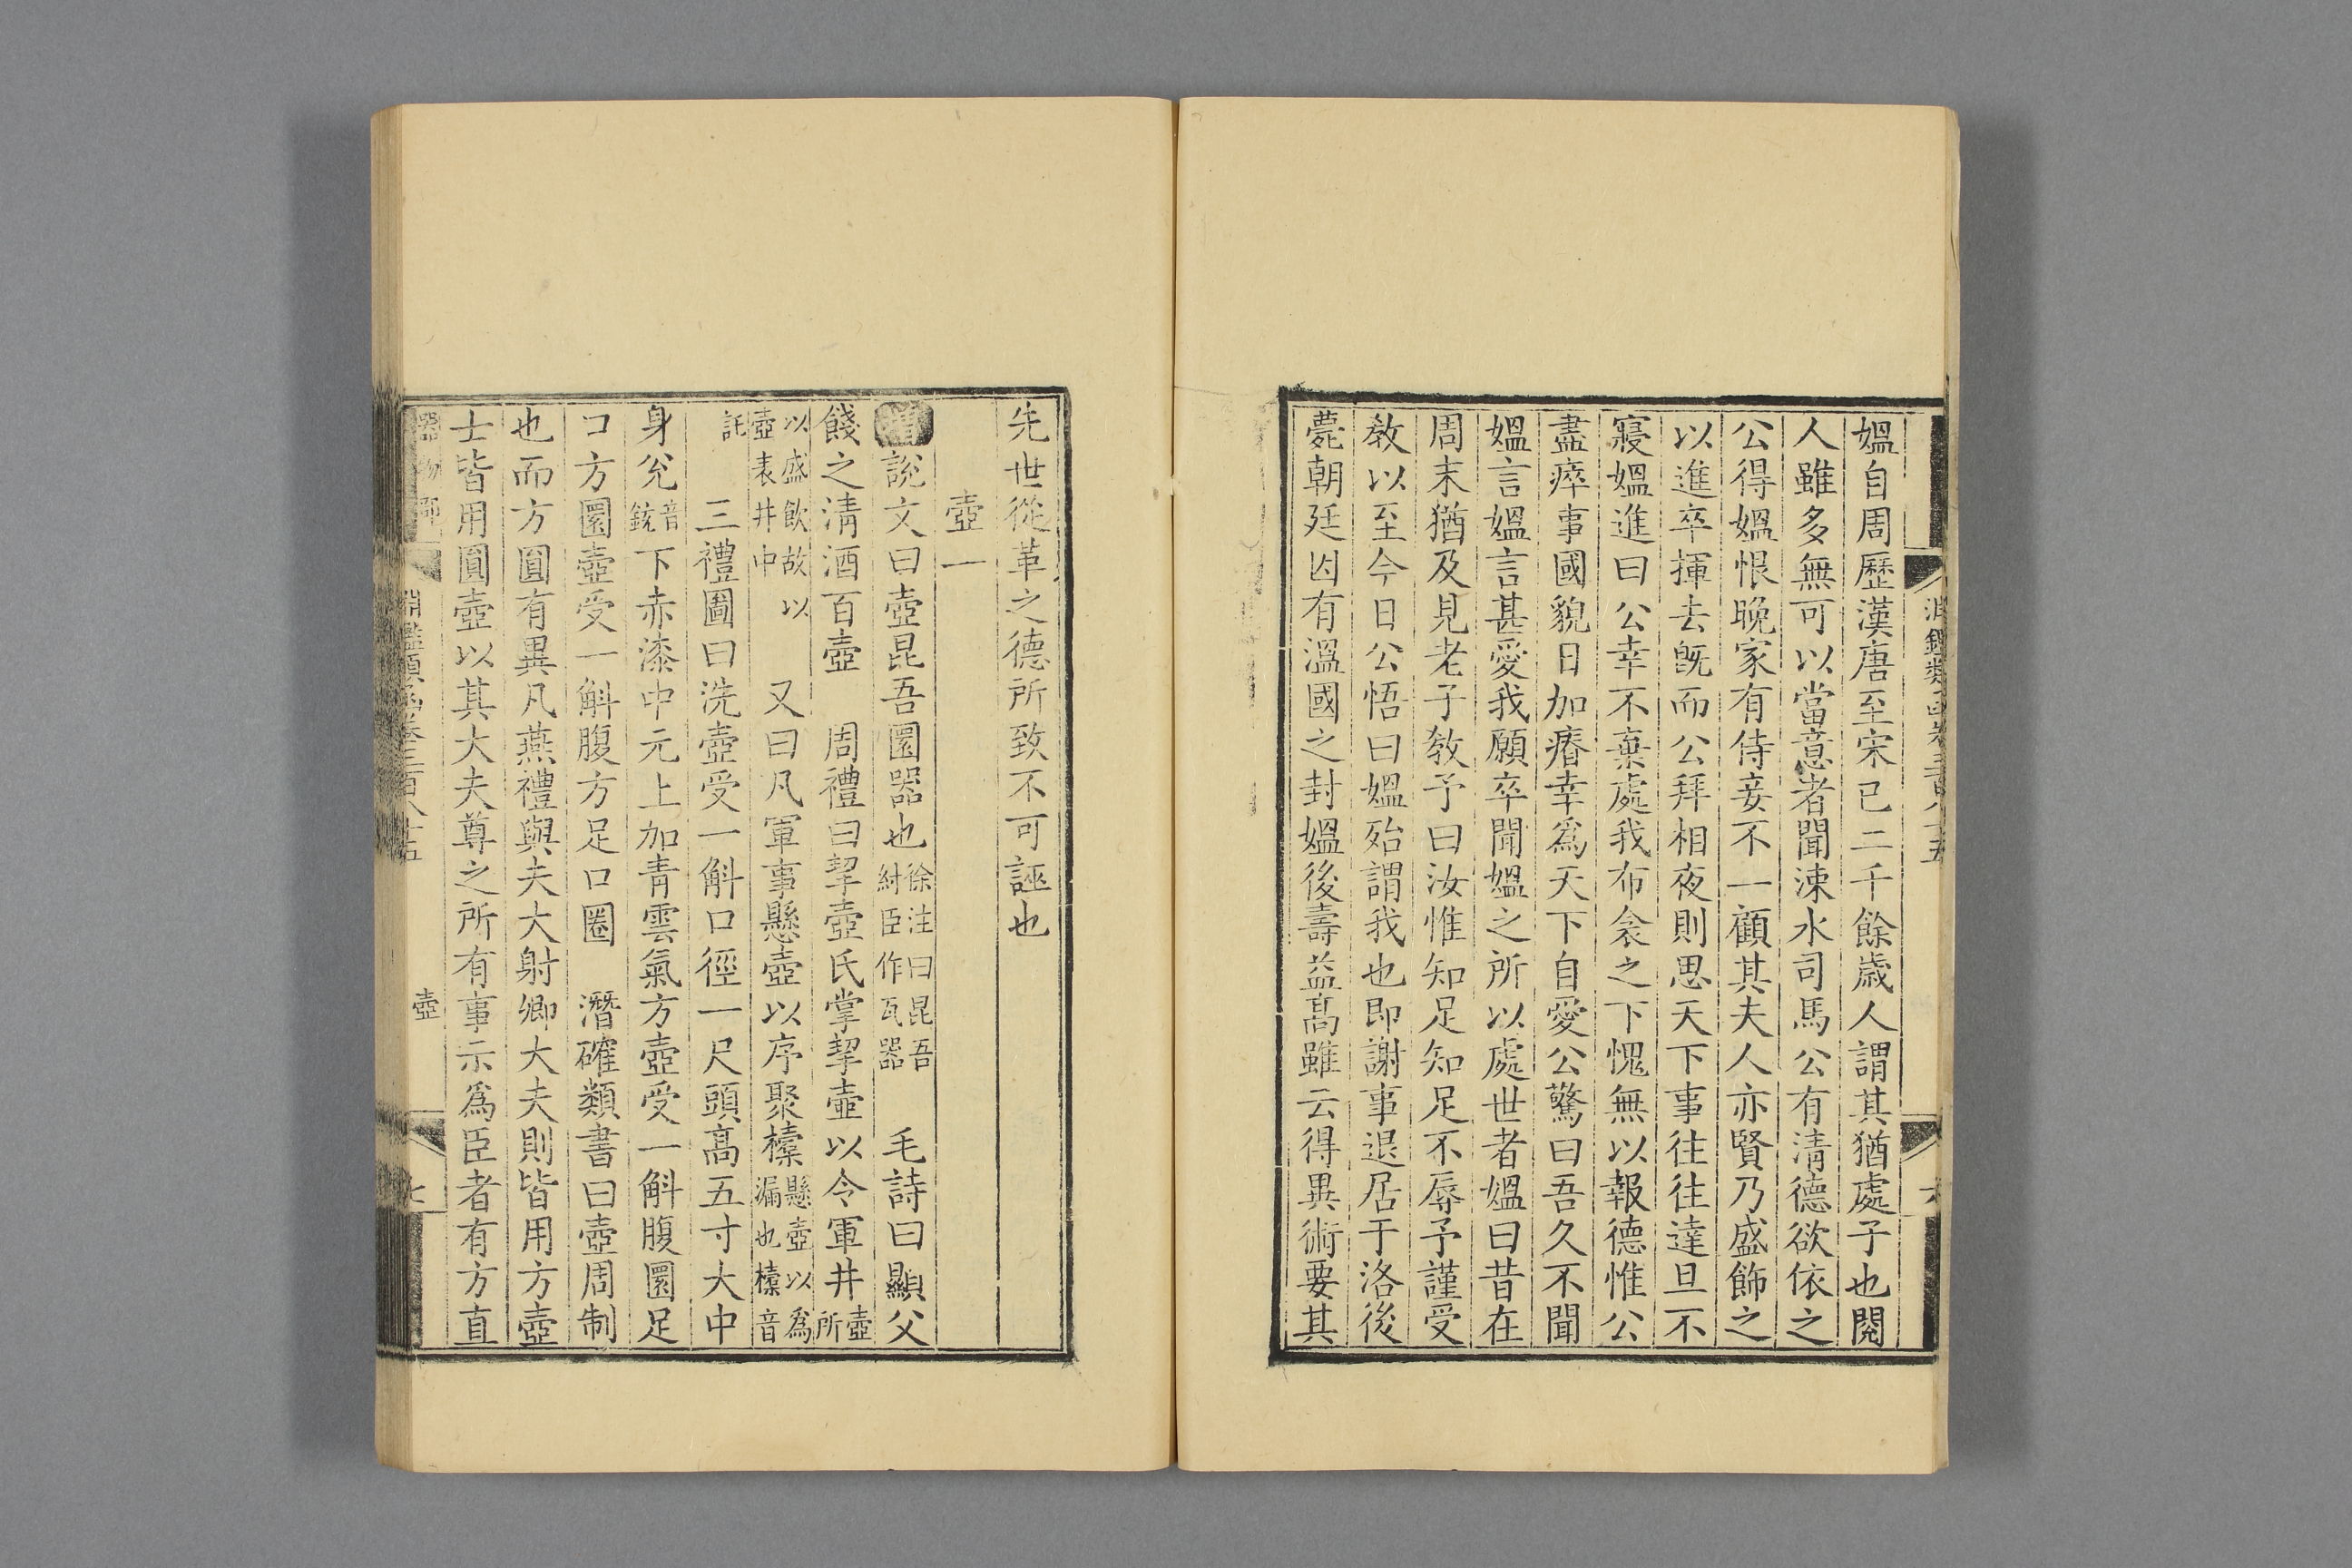 媼自周歷漢唐至宋已二千餘歲人謂其猶處子也閱
人雖多無可以當意者聞涑水司馬公有清德欲依之
公得媼恨晚家有侍妾不一顧其夫人亦賢乃盛飾之
以進卒揮去既而公拜相夜則思天下事往往達旦不
寢媼進曰公幸不棄處我布衾之下愧無以報德惟公
盡瘁事國貌日加瘠幸爲天下自愛公驚曰吾久不聞
媼言媼言甚愛我願卒聞媼之所以處世者媼曰昔在
周末猶及見老子教予曰汝惟知足知足不辱予謹受
教以至今日公悟曰媼殆謂我也即謝事退居于洛後
薨朝廷因有溫國之封媼後壽益高雖云得異術要其
先世從革之德所致不可誣也
壺一
增說文曰壺昆吾圜器也徐注曰昆吾紂臣作瓦器 毛詩曰顯父
餞之清酒百壺 周禮曰挈壺氏掌挈壺以令軍井壺所
以盛飲故以壺表井中 又曰凡軍事懸壺以序聚㯿懸壺以爲漏也㯿音
託 三禮圖曰洗壺受一斛口徑一尺頭高五寸大中
身兊音銳下赤漆中元上加青雲氣方壺受一斛腹圜足
口方圜壺受一斛腹方足口圈 潛確類書曰壺周制
也而方圓有異凡燕禮與夫大射卿大夫則皆用方壺
士皆用圓壺以其大夫尊之所有事示爲臣者有方直
器物
淵鑑類函卷三百八十五
壺
七